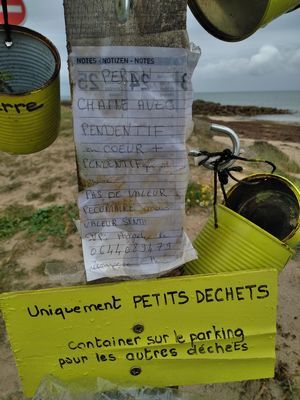 NOTES - NOTIZEN - NOTES
PERDU
CHAINE AVEC
PENDENTIF
en COEUR +
PENDENTIF
PAS DE VALEUR
PECUNIAIRE mais
VALEUR SENTI
SVP
erre
Uniquement PETITS DECHETS
Container sur le parking
pour les autres déchets